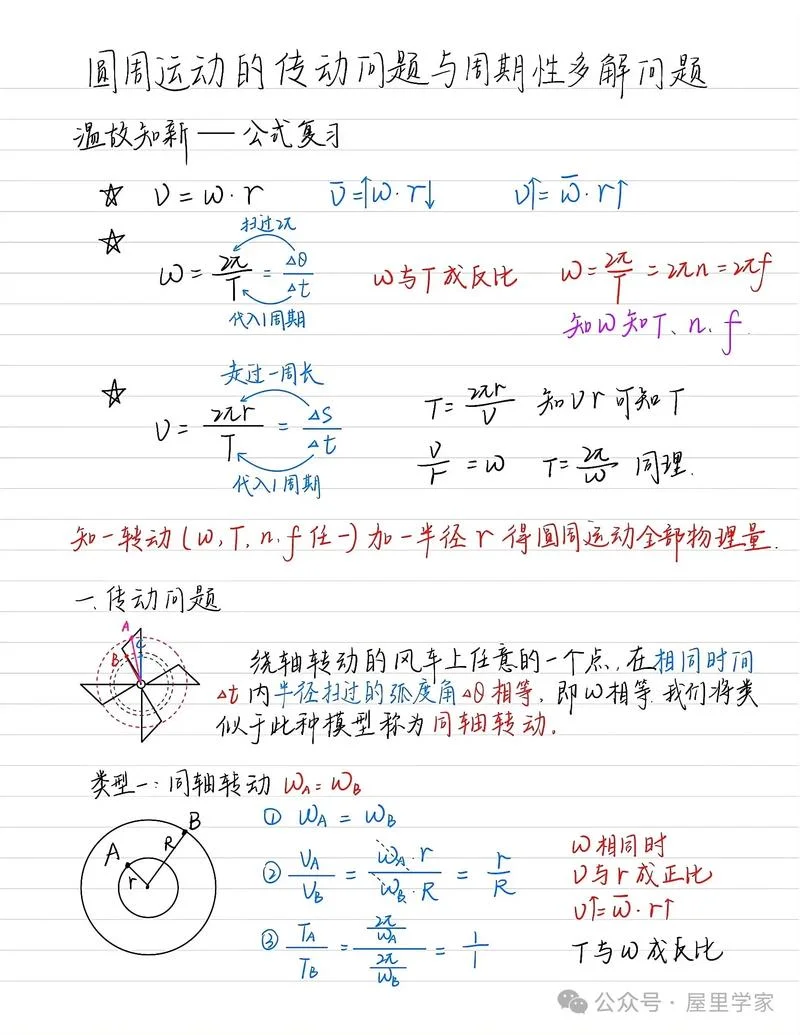 圆周运动的传动问题与周期性多解问题
温故知新——公式复习
☆ v = ω·r   v̄=↑ω·r↓   v↑= ω̄·r↑
☆
扫过2π
ω = 2π/T = Δθ/Δt   ω与T成反比   ω = 2π/T = 2πn = 2πf
代入1周期
知ω知T、n、f.
☆
走过一周长
v = 2πr/T = Δs/Δt   T = 2πr/v 知v r可知T
代入1周期
v/r = ω   T = 2π/ω 同理.
知一转动(ω,T,n,f任一)加一半径r得圆周运动全部物理量.
一.传动问题
A
B
绕轴转动的风车上任意的一个点,在相同时间
Δt内半径扫过的弧度角Δθ相等,即ω相等.我们将类
似于此种模型称为同轴转动.
类型一:同轴转动 ωA=ωB
A
B
r
R
① ωA = ωB
② vA/vB = ωA·r/ωB·R = r/R
③ TA/TB = (2π/ωA)/(2π/ωB) = 1/1
ω相同时
v与r成正比
v↑= ω̄·r↑
T与ω成反比
公众号·屋里学家